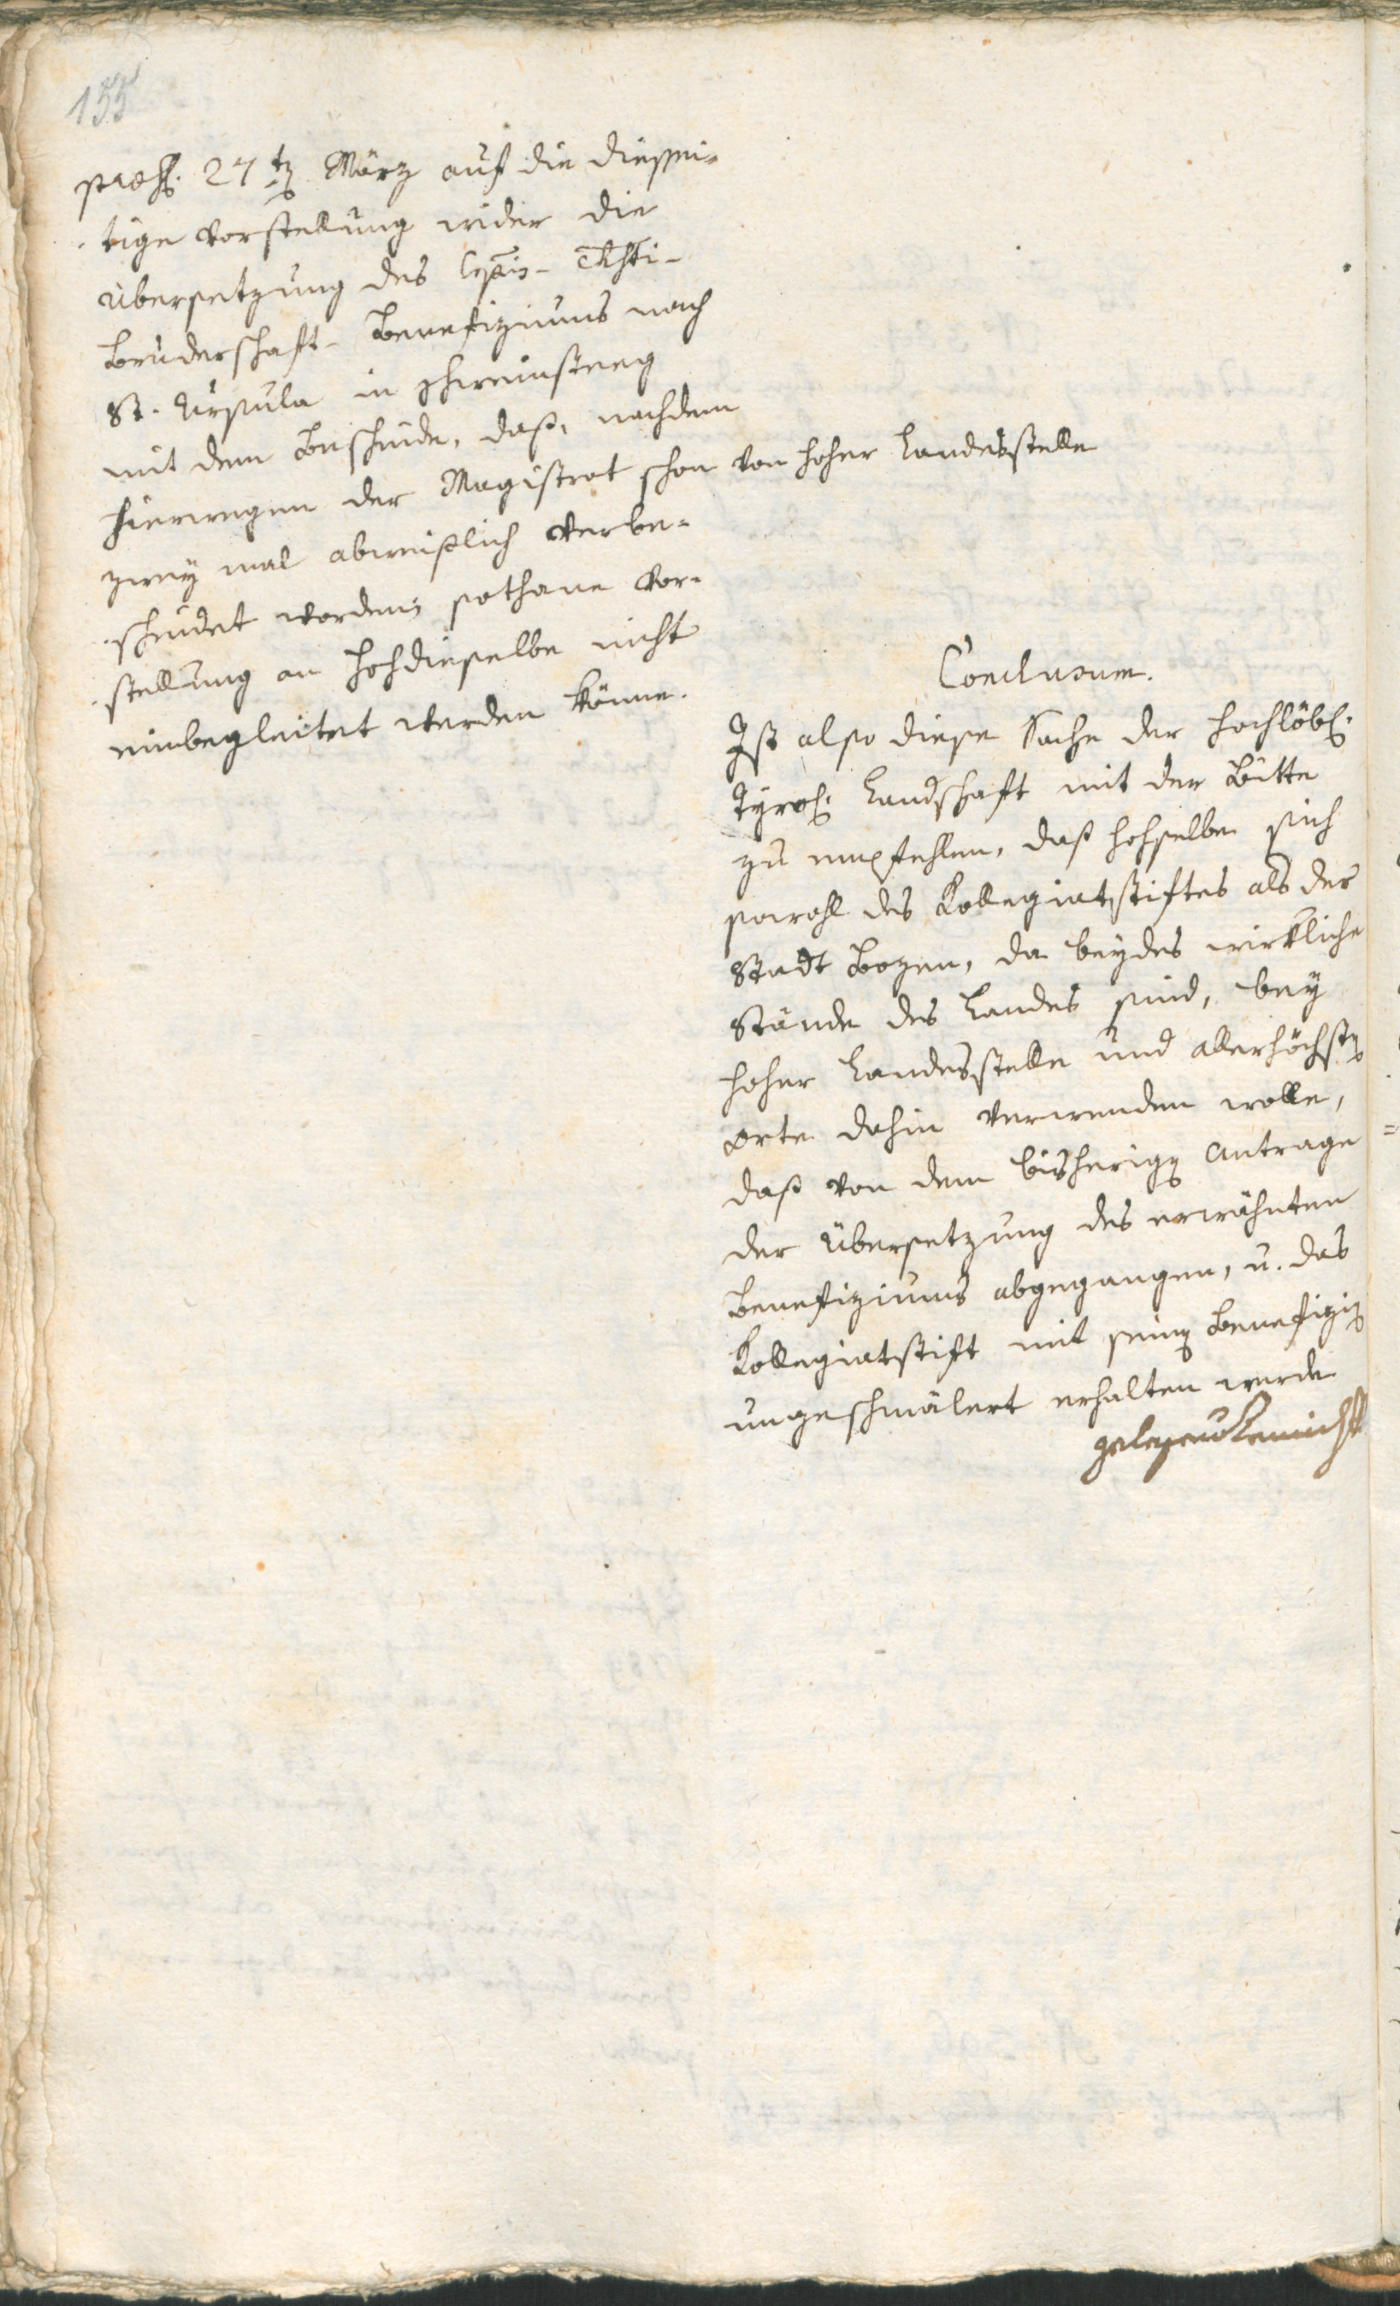 155
praes. 27ten März auf die diessei-
tige Vorstellung wider die
Übersetzung des Corporis- Christi-
Bruderschaft- Benefiziums nach
St. Ursula in
mit dem Bescheide, daß, nachdem
hierwegen der Magistrat schon von hoher Landesstelle
zwey mal abweißlich verbe-
scheidet worden, sothane Vor-
stellung an Hochdieselbe nicht
einbegleitet werden könne.
Conclusum.
Ist also diese Sache der hochlöbl.
Tyrol. Landschaft mit der Bitte
zu empfehlen, daß hochselbe sich
sowohl des Kollegiatstiftes als der
Stadt Bozen, da beydes wirkliche
Stände des Landes sind, bey
hoher Landesstelle und allerhöchsten
Orte dahin verwenden wolle,
daß von dem bisherigen Antrage
der Übersetzung des erwähnten
Benefiziums abgegangen, u. das
Kollegiatstift mit seinen Benefizien
ungeschmälert erhalten werde